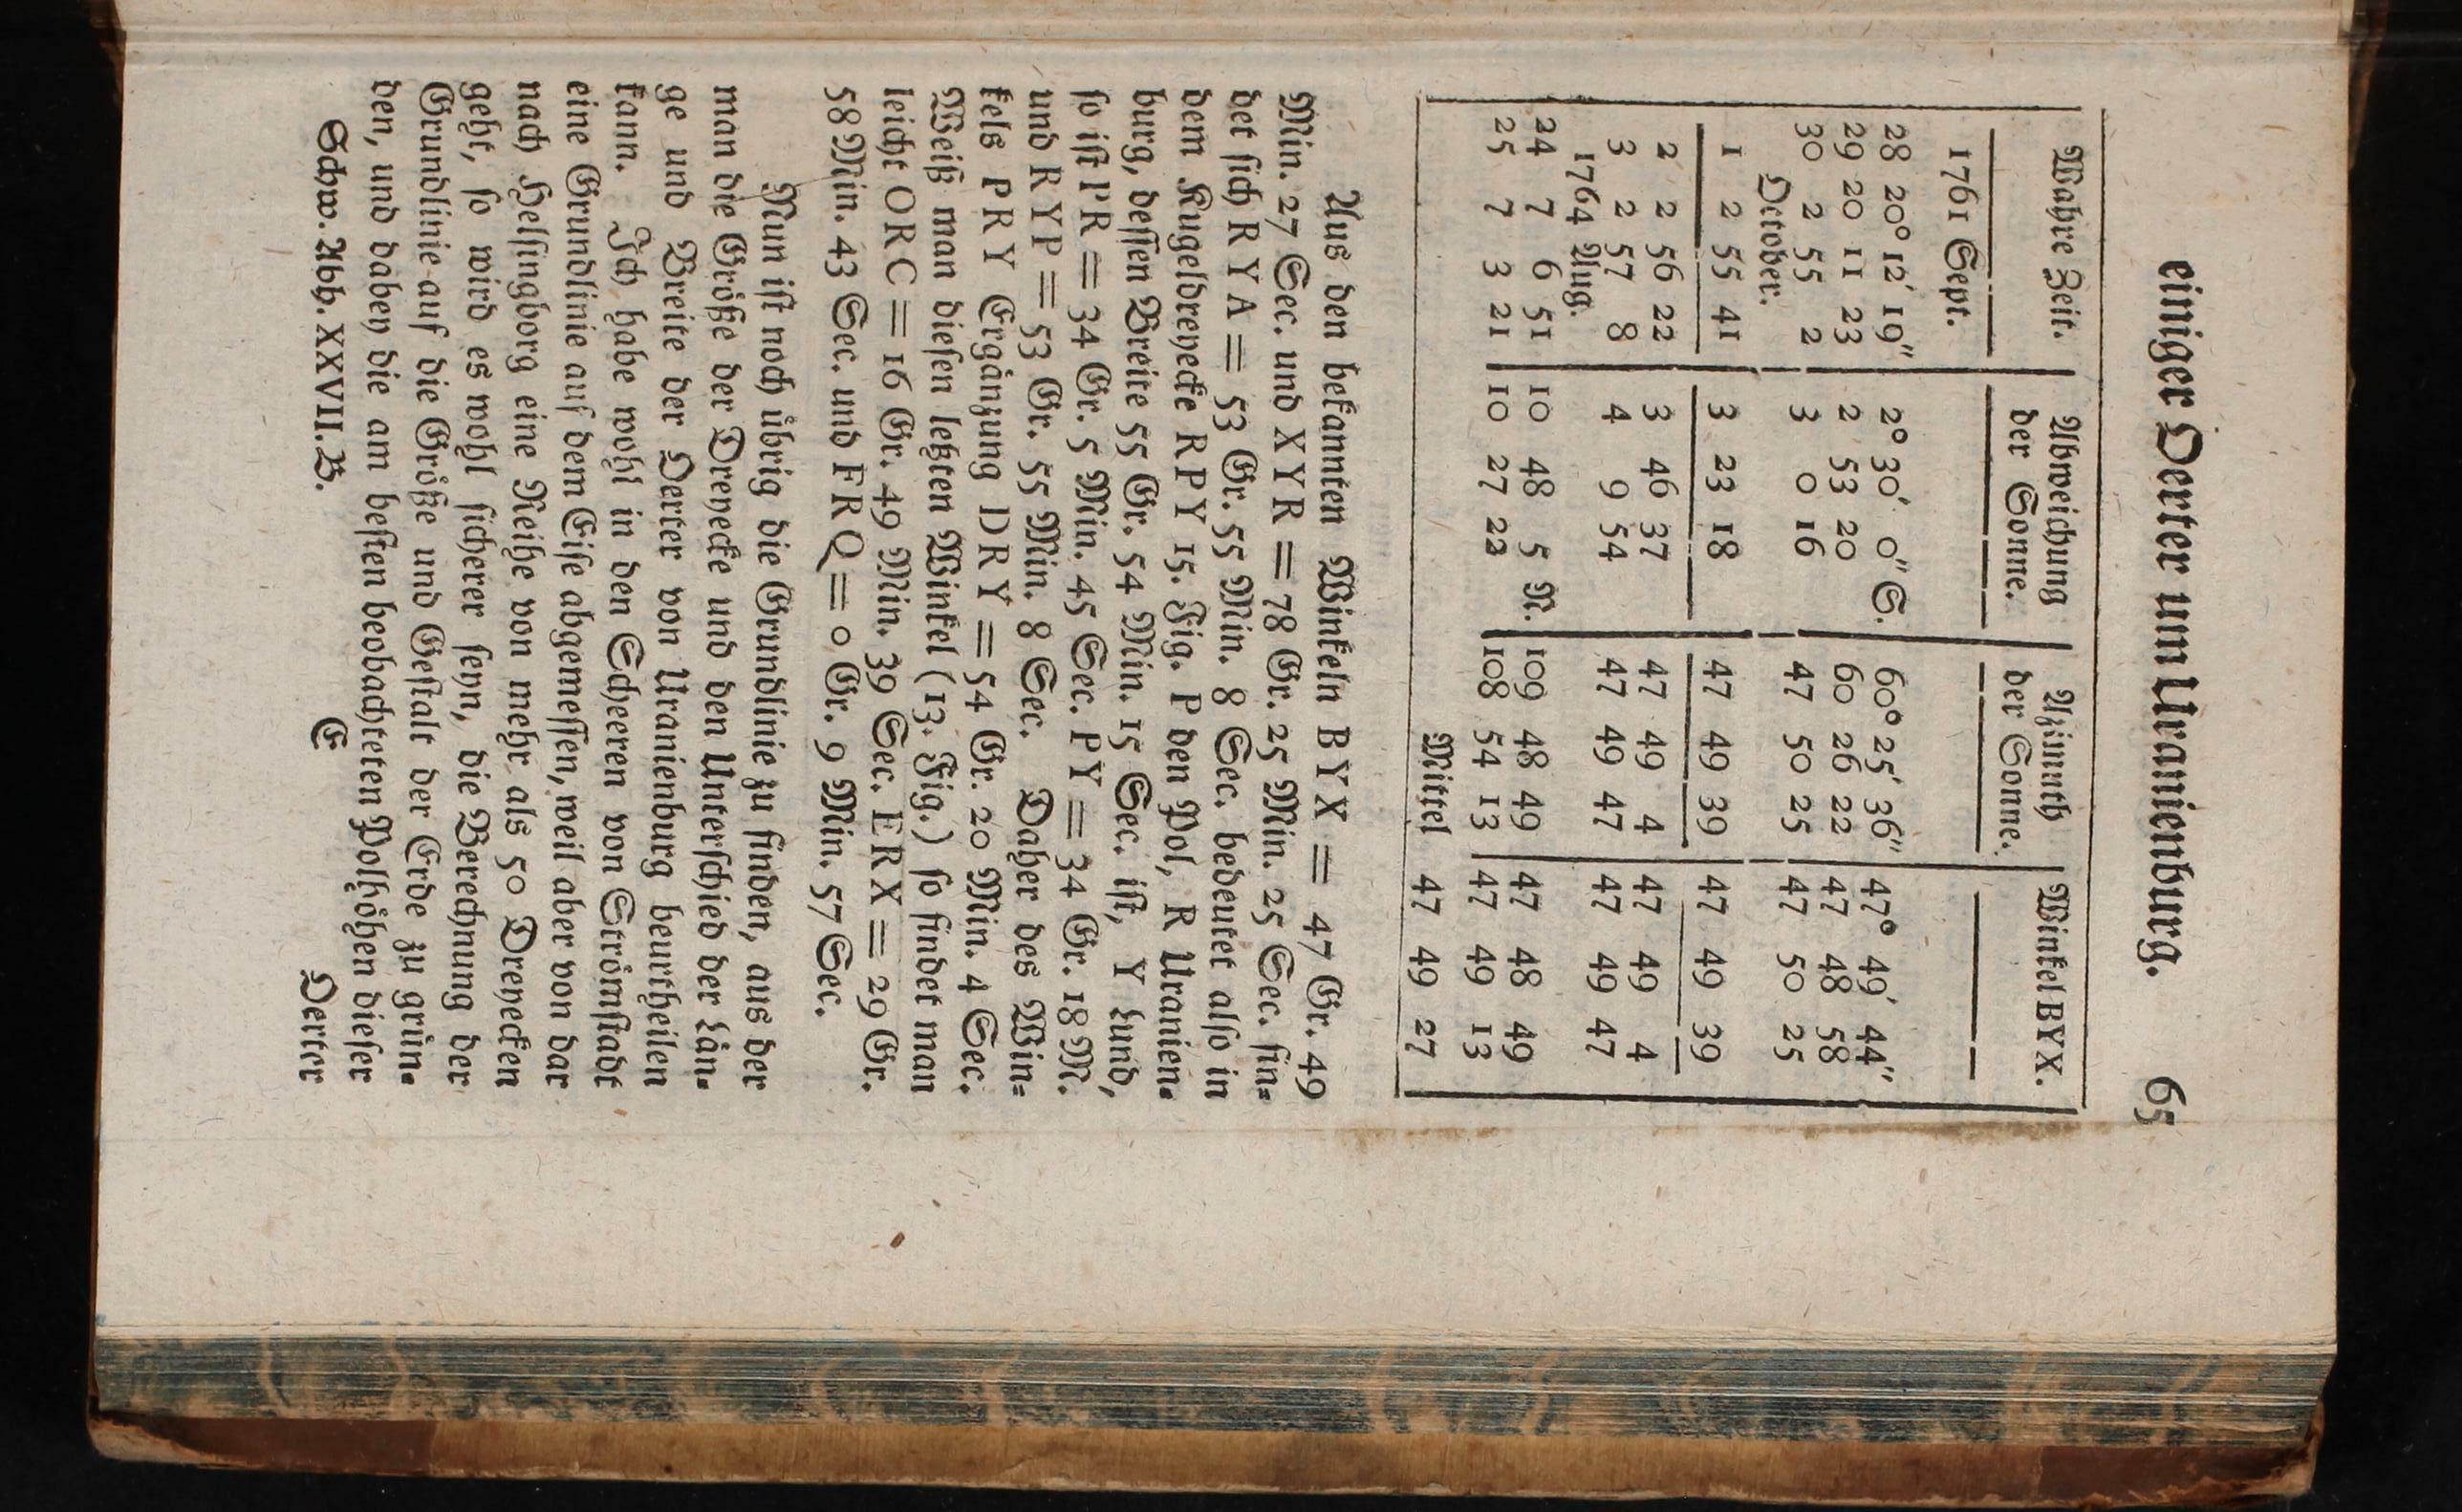 einiger Oerter um Uranienburg. 65
Wahre Zeit. Abweichung der Sonne. Azimuth der Sonne. Winkel BYX.
1761 Sept.
28 20° 12′ 19″ 2° 30′ 0″ S. 60° 25′ 36″ 47° 49′ 44″
29 20 11 23 2 53 20 60 26 22 47 48 58
30 2 55 2 3 0 16 47 50 25 47 50 25
October.
1 2 55 41 3 23 18 47 49 39 47 49 39
2 2 56 22 3 46 37 47 49 4 47 49 4
3 2 57 8 4 9 54 47 49 47 47 49 47
1764 Aug.
24 7 6 51 10 48 5 N. 109 48 49 47 48 49
25 7 3 21 10 27 22 108 54 13 47 49 13
Mittel 47 49 27
Aus den bekannten Winkeln BYX = 47 Gr. 49
Min. 27 Sec. und XYR = 78 Gr. 25 Min. 25 Sec. fin-
det sich RYA = 53 Gr. 55 Min. 8 Sec. bedeutet also in
dem Kugeldreyecke RPY 15. Fig. P den Pol, R Uranien-
burg, dessen Breite 55 Gr. 54 Min. 15 Sec. ist, Y Lund,
so ist PR = 34 Gr. 5 Min. 45 Sec. PY = 34 Gr. 18 M.
und RYP = 53 Gr. 55 Min. 8 Sec. Daher des Win-
kels PRY Ergänzung DRY = 54 Gr. 20 Min. 4 Sec.
Weiß man diesen letzten Winkel (13. Fig.) so findet man
leicht ORC = 16 Gr. 49 Min. 39 Sec. ERX = 29 Gr.
58 Min. 43 Sec. und FRQ = 0 Gr. 9 Min. 57 Sec.
Nun ist noch übrig die Grundlinie zu finden, aus der
man die Größe der Dreyecke und den Unterschied der Län-
ge und Breite der Oerter von Uranienburg beurtheilen
kann. Ich habe wohl in den Scheeren von Strömstadt
eine Grundlinie auf dem Eise abgemessen, weil aber von dar
nach Helsingborg eine Reihe von mehr als 50 Dreyecken
geht, so wird es wohl sicherer seyn, die Berechnung der
Grundlinie auf die Größe und Gestalt der Erde zu grün-
den, und dabey die am besten beobachteten Polhöhen dieser
Schw. Abh. XXVII. B. E Oerter